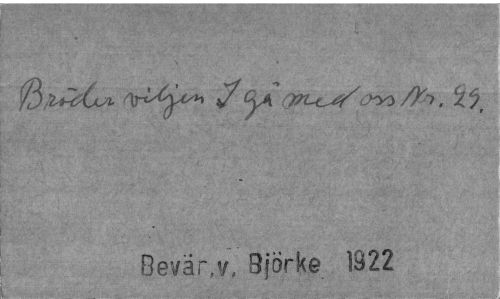 Bröder viljen I gå med oss Nr. 29.
Bevär,v, Björke 1922